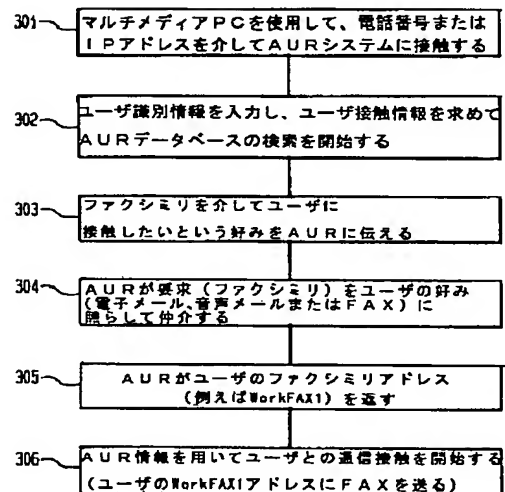 301 マルチメディアPCを使用して、電話番号または
IPアドレスを介してAURシステムに接触する
302 ユーザ識別情報を入力し、ユーザ接触情報を求めて
AURデータベースの検索を開始する
303 ファクシミリを介してユーザに
接触したいという好みをAURに伝える
304 AURが要求(ファクシミリ)をユーザの好み
(電子メール、音声メールまたはFAX)に
照らして仲介する
305 AURがユーザのファクシミリアドレス
(例えばWorkFAX1)を返す
306 AUR情報を用いてユーザとの通信接触を開始する
(ユーザのWorkFAX1アドレスにFAXを送る)